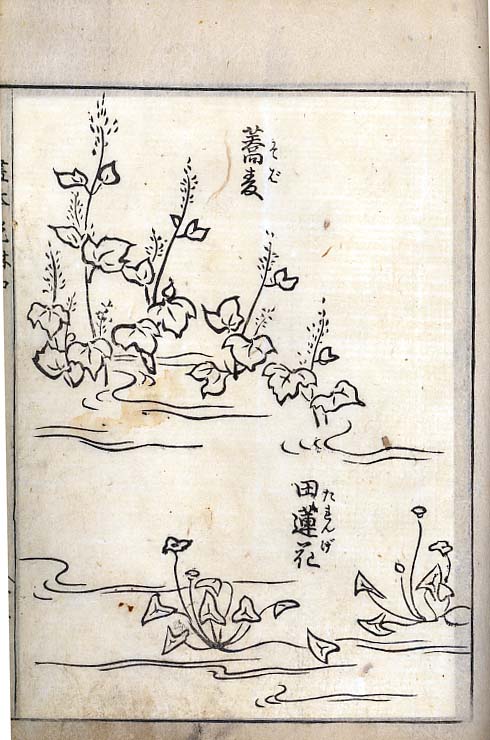 蕎麦
そば
田蓮花
たれんげ